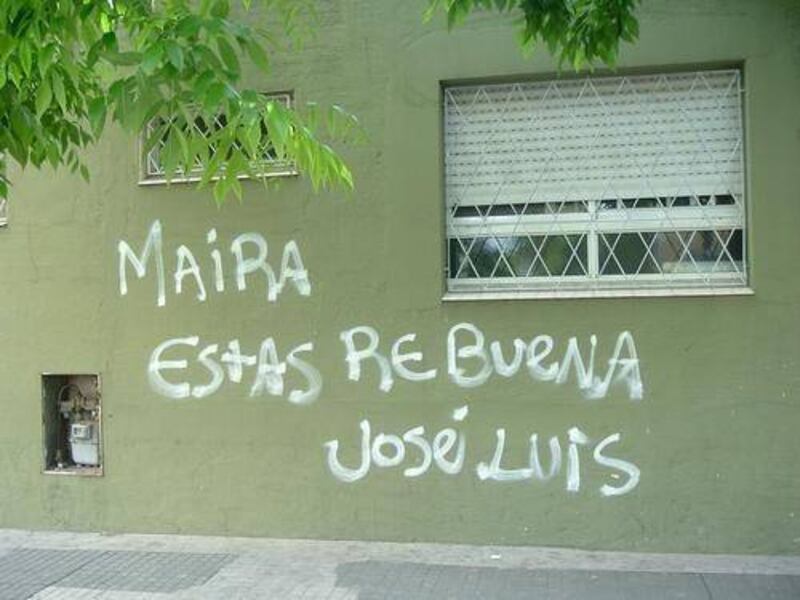 MAiRA
ESTAS RE BUENA
José LUiS